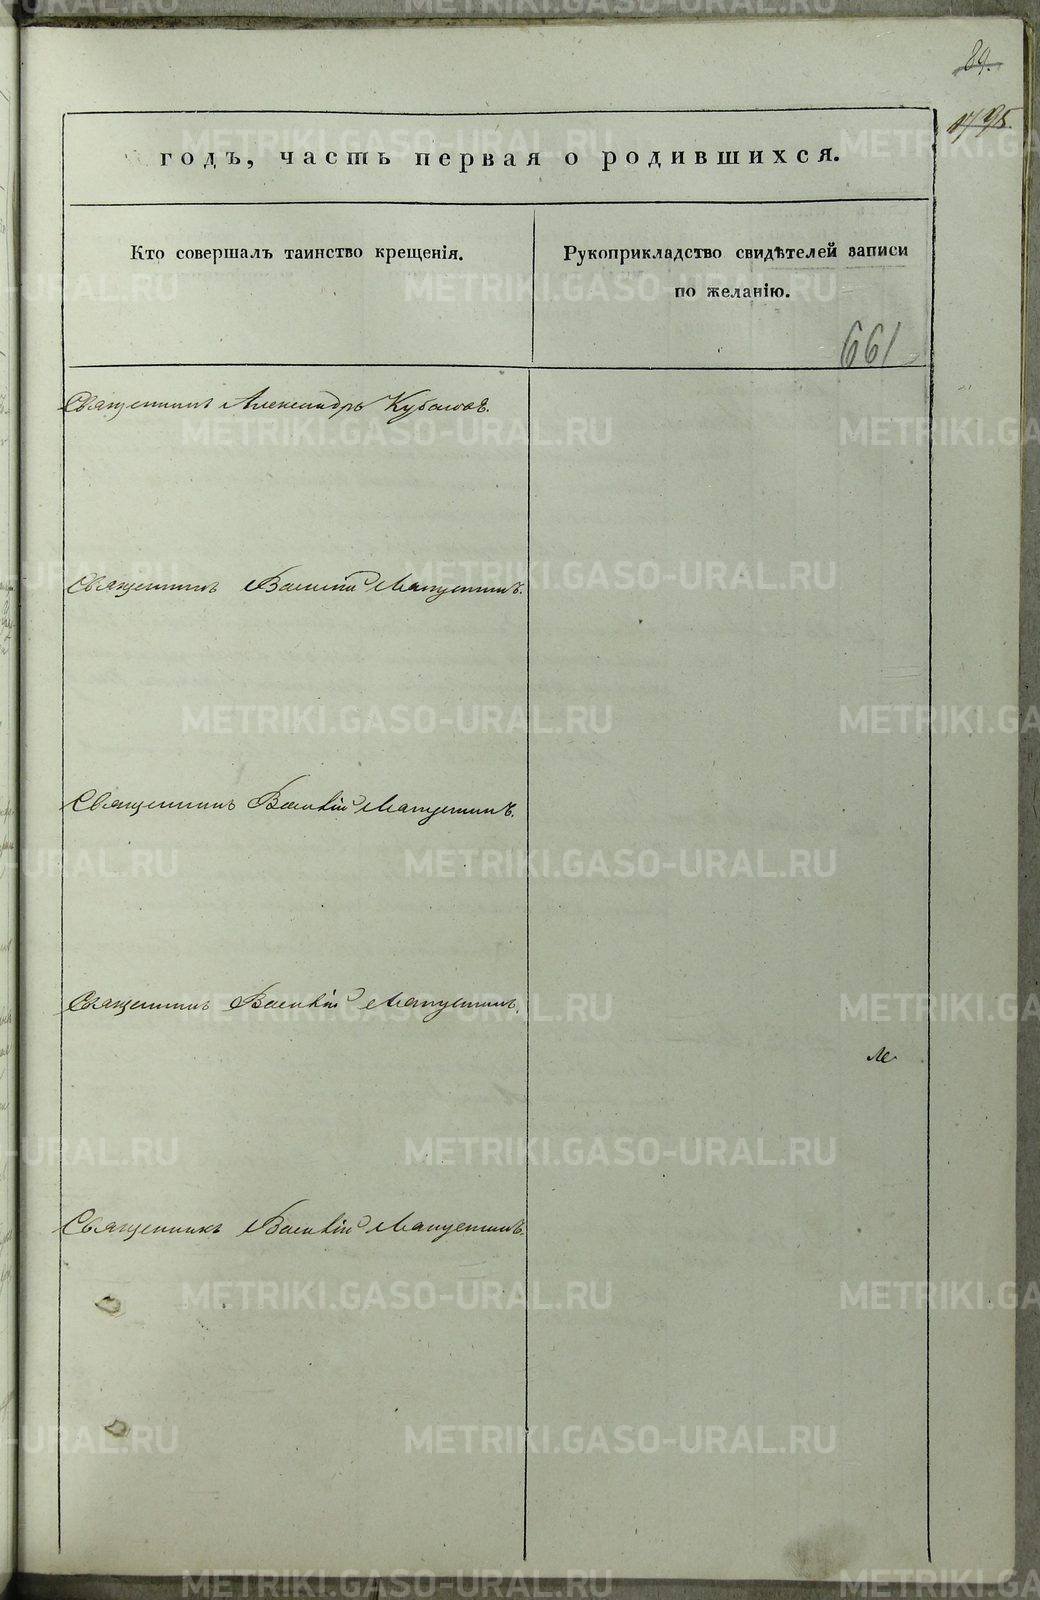 89.
годъ, часть первая о родившихся.
Кто совершалъ таинство крещенія.
Рукоприкладство свидѣтелей записи
по желанію.
661
Священникъ Александръ
Священникъ Василій
Священникъ Василій
Священникъ Василій
Священникъ Василій
METRIKI.GASO-URAL.RU